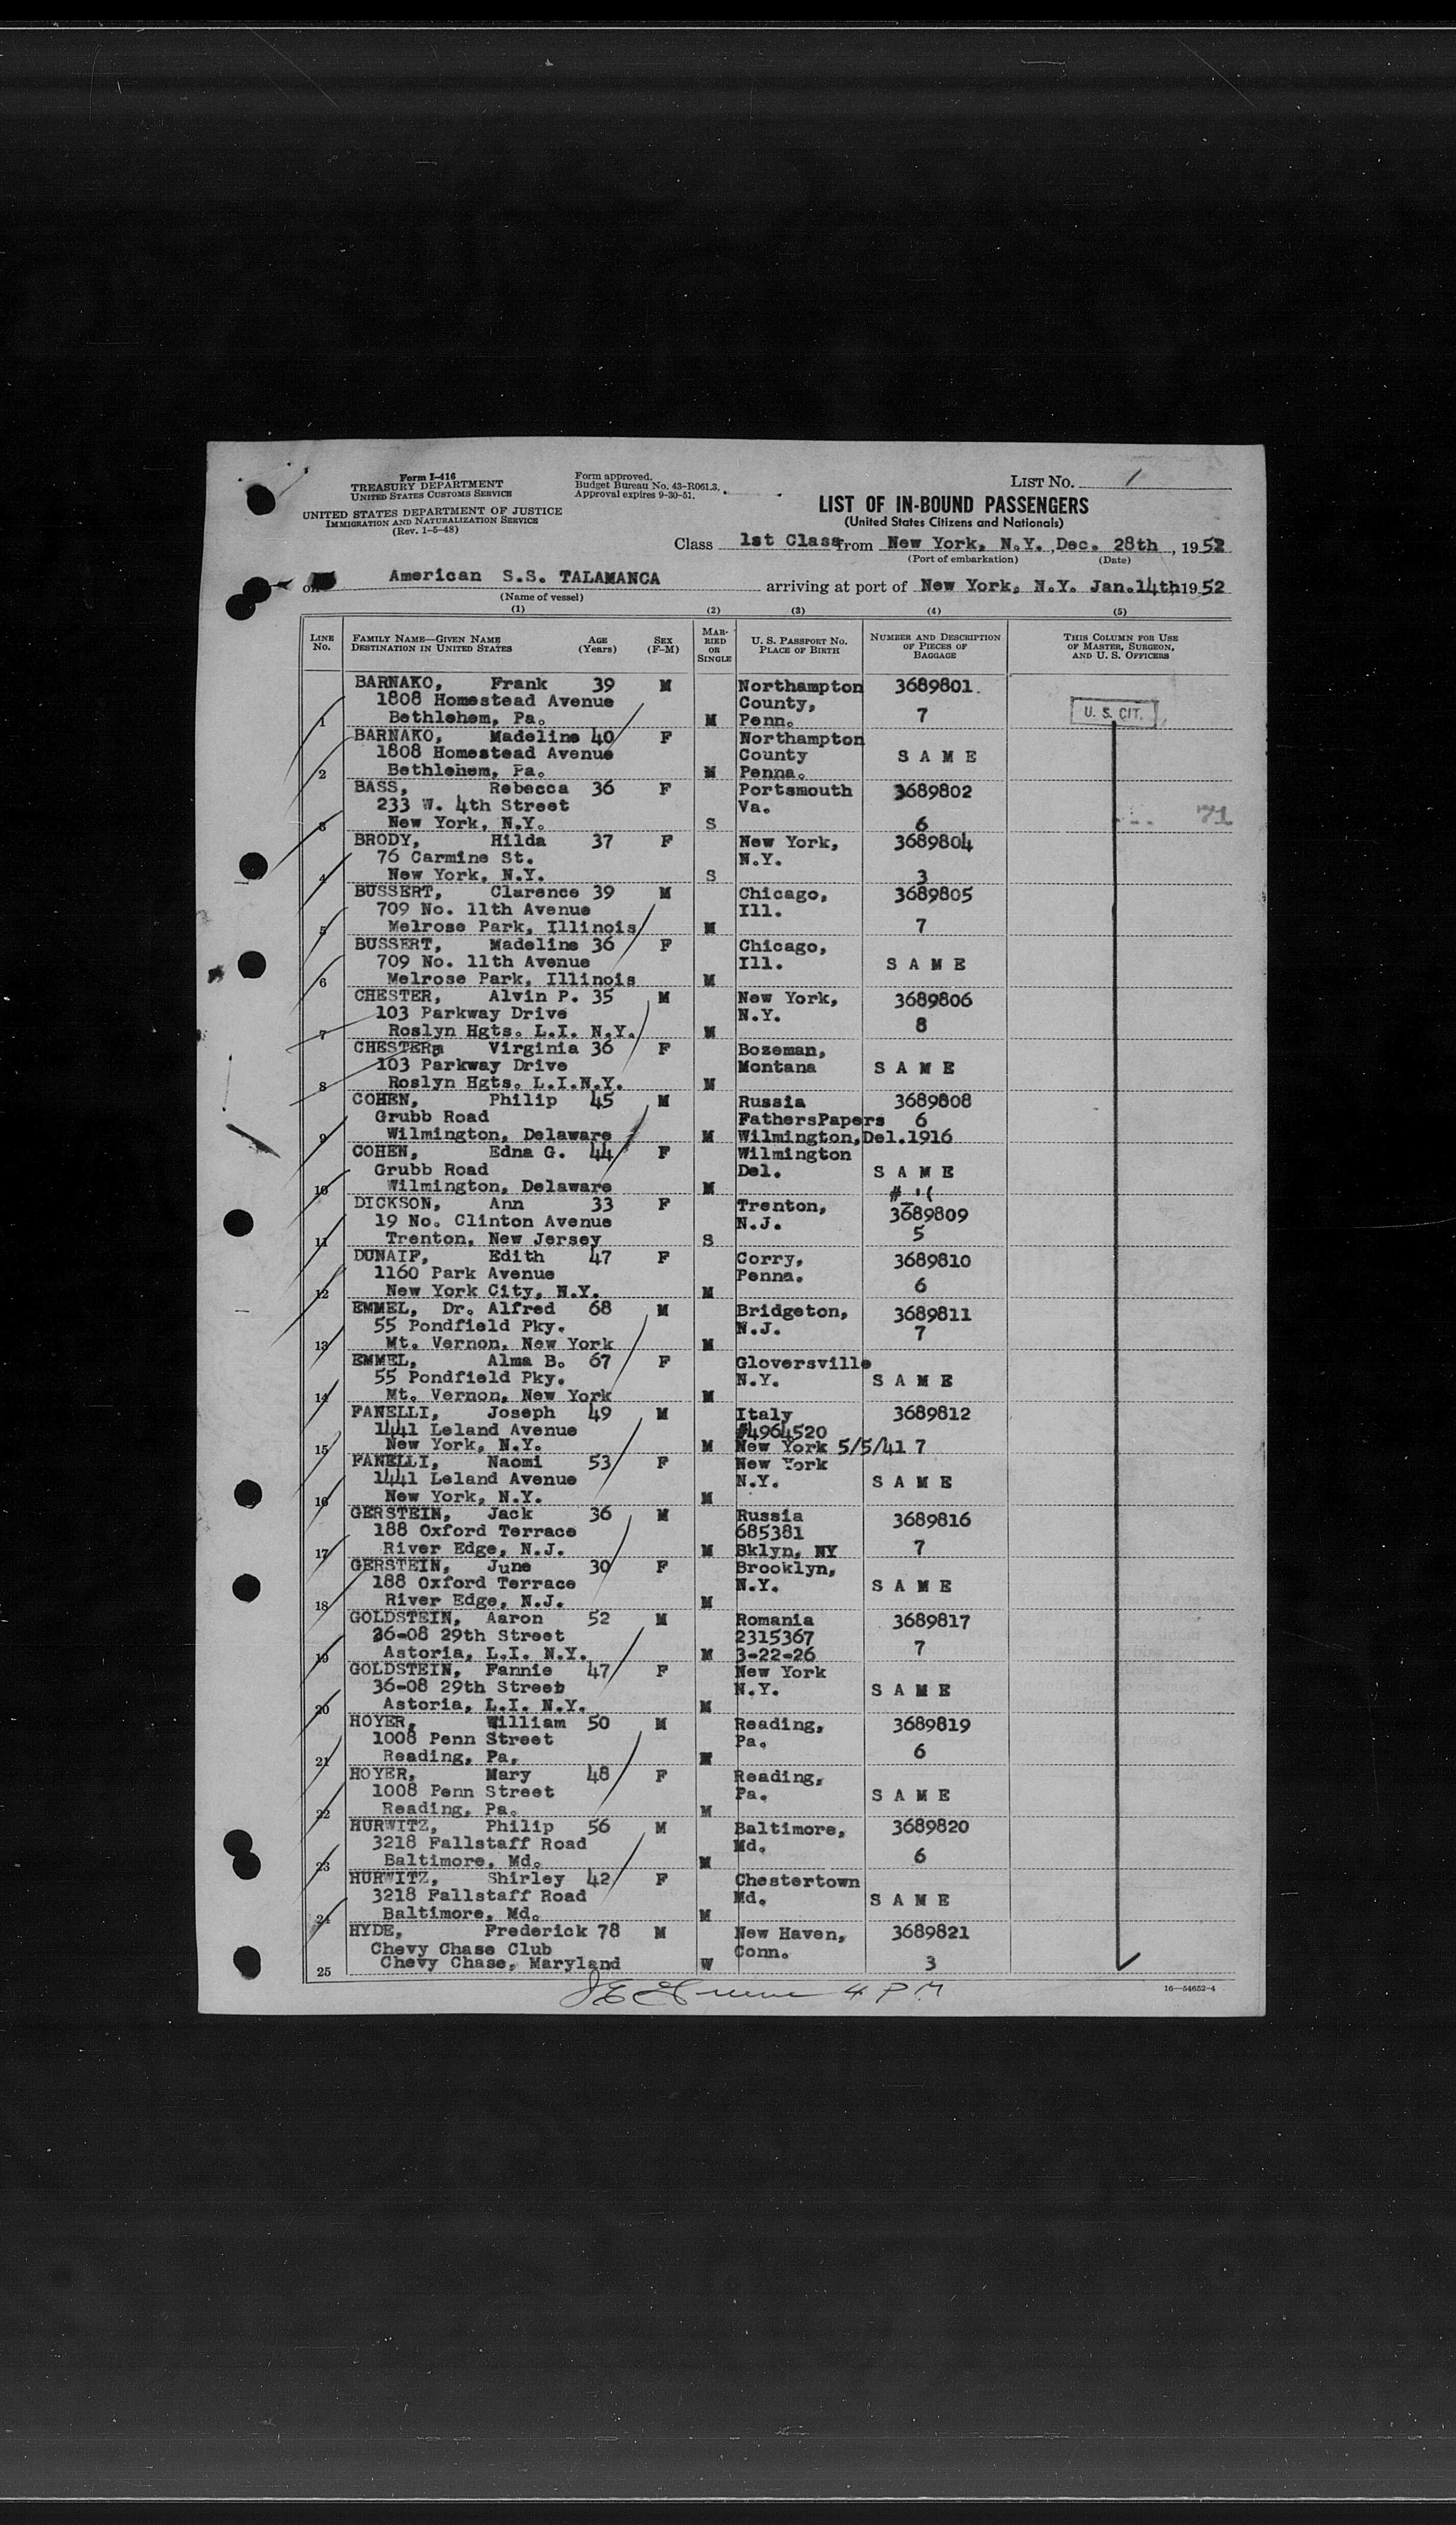 Form I-416
TREASURY DEPARTMENT
UNITED STATES CUSTOMS SERVICE
UNITED STATES DEPARTMENT OF JUSTICE
IMMIGRATION AND NATURALIZATION SERVICE
(Rev. 1-5-48)
Form approved.
Budget Bureau No. 43-R061.3.
Approval expires 9-30-51.
LIST NO. 1
LIST OF IN-BOUND PASSENGERS
(United States Citizens and Nationals)
Class 1st Class from New York, N.Y., Dec. 28th, 1952
(Port of embarkation) (Date)
on American S.S. TALAMANCA arriving at port of New York, N.Y. Jan.14th 1952
(Name of vessel)
(1) (2) (3) (4) (5)
LINE NO. FAMILY NAME—GIVEN NAME DESTINATION IN UNITED STATES AGE (Years) SEX (F-M) MARRIED OR SINGLE U. S. PASSPORT NO. PLACE OF BIRTH NUMBER AND DESCRIPTION OF PIECES OF BAGGAGE THIS COLUMN FOR USE OF MASTER, SURGEON, AND U. S. OFFICERS
BARNAKO, Frank 39 M Northampton 3689801.
1808 Homestead Avenue County,
1 Bethlehem, Pa. M Penn. 7 U. S. CIT.
BARNAKO, Madeline 40 F Northampton
1808 Homestead Avenue County S A M E
2 Bethlehem, Pa. M Penna.
BASS, Rebecca 36 F Portsmouth 3689802
233 W. 4th Street Va. 71
3 New York, N.Y. S 6
BRODY, Hilda 37 F New York, 3689804
76 Carmine St. N.Y.
4 New York, N.Y. S 3
BUSSERT, Clarence 39 M Chicago, 3689805
709 No. 11th Avenue Ill.
5 Melrose Park, Illinois M 7
BUSSERT, Madeline 36 F Chicago,
709 No. 11th Avenue Ill. S A M E
6 Melrose Park, Illinois M
CHESTER, Alvin P. 35 M New York, 3689806
103 Parkway Drive N.Y.
7 Roslyn Hgts. L.I. N.Y. M 8
CHESTER, Virginia 36 F Bozeman,
103 Parkway Drive Montana S A M E
8 Roslyn Hgts. L.I.N.Y. M
COHEN, Philip 45 M Russia 3689808
Grubb Road FathersPapers 6
9 Wilmington, Delaware M Wilmington,Del.1916
COHEN, Edna G. 44 F Wilmington
Grubb Road Del. S A M E
10 Wilmington, Delaware M
DICKSON, Ann 33 F Trenton, 3689809
19 No. Clinton Avenue N.J.
11 Trenton, New Jersey S 5
DUNAIF, Edith 47 F Corry, 3689810
1160 Park Avenue Penna.
12 New York City, N.Y. M 6
EMMEL, Dr. Alfred 68 M Bridgeton, 3689811
55 Pondfield Pky. N.J. 7
13 Mt. Vernon, New York M
EMMEL, Alma B. 67 F Gloversville
55 Pondfield Pky. N.Y. S A M E
14 Mt. Vernon, New York M
FANELLI, Joseph 49 M Italy 3689812
1441 Leland Avenue #4964520
15 New York, N.Y. M New York 5/5/41 7
FANELLI, Naomi 53 F New York
1441 Leland Avenue N.Y. S A M E
16 New York, N.Y. M
GERSTEIN, Jack 36 M Russia 3689816
188 Oxford Terrace 685381
17 River Edge, N.J. M Bklyn, NY 7
GERSTEIN, June 30 F Brooklyn,
188 Oxford Terrace N.Y. S A M E
18 River Edge, N.J. M
GOLDSTEIN, Aaron 52 M Romania 3689817
36-08 29th Street 2315367
19 Astoria, L.I. N.Y. M 3-22-26 7
GOLDSTEIN, Fannie 47 F New York
36-08 29th Street N.Y. S A M E
20 Astoria, L.I. N.Y. M
HOYER, William 50 M Reading, 3689819
1008 Penn Street Pa.
21 Reading, Pa. M 6
HOYER, Mary 48 F Reading,
1008 Penn Street Pa. S A M E
22 Reading, Pa. M
HURWITZ, Philip 56 M Baltimore, 3689820
3218 Fallstaff Road Md.
23 Baltimore, Md. M 6
HURWITZ, Shirley 42 F Chestertown
3218 Fallstaff Road Md. S A M E
24 Baltimore, Md. M
HYDE, Frederick 78 M New Haven, 3689821
Chevy Chase Club Conn.
25 Chevy Chase, Maryland W 3
4 PM
16—54652-4